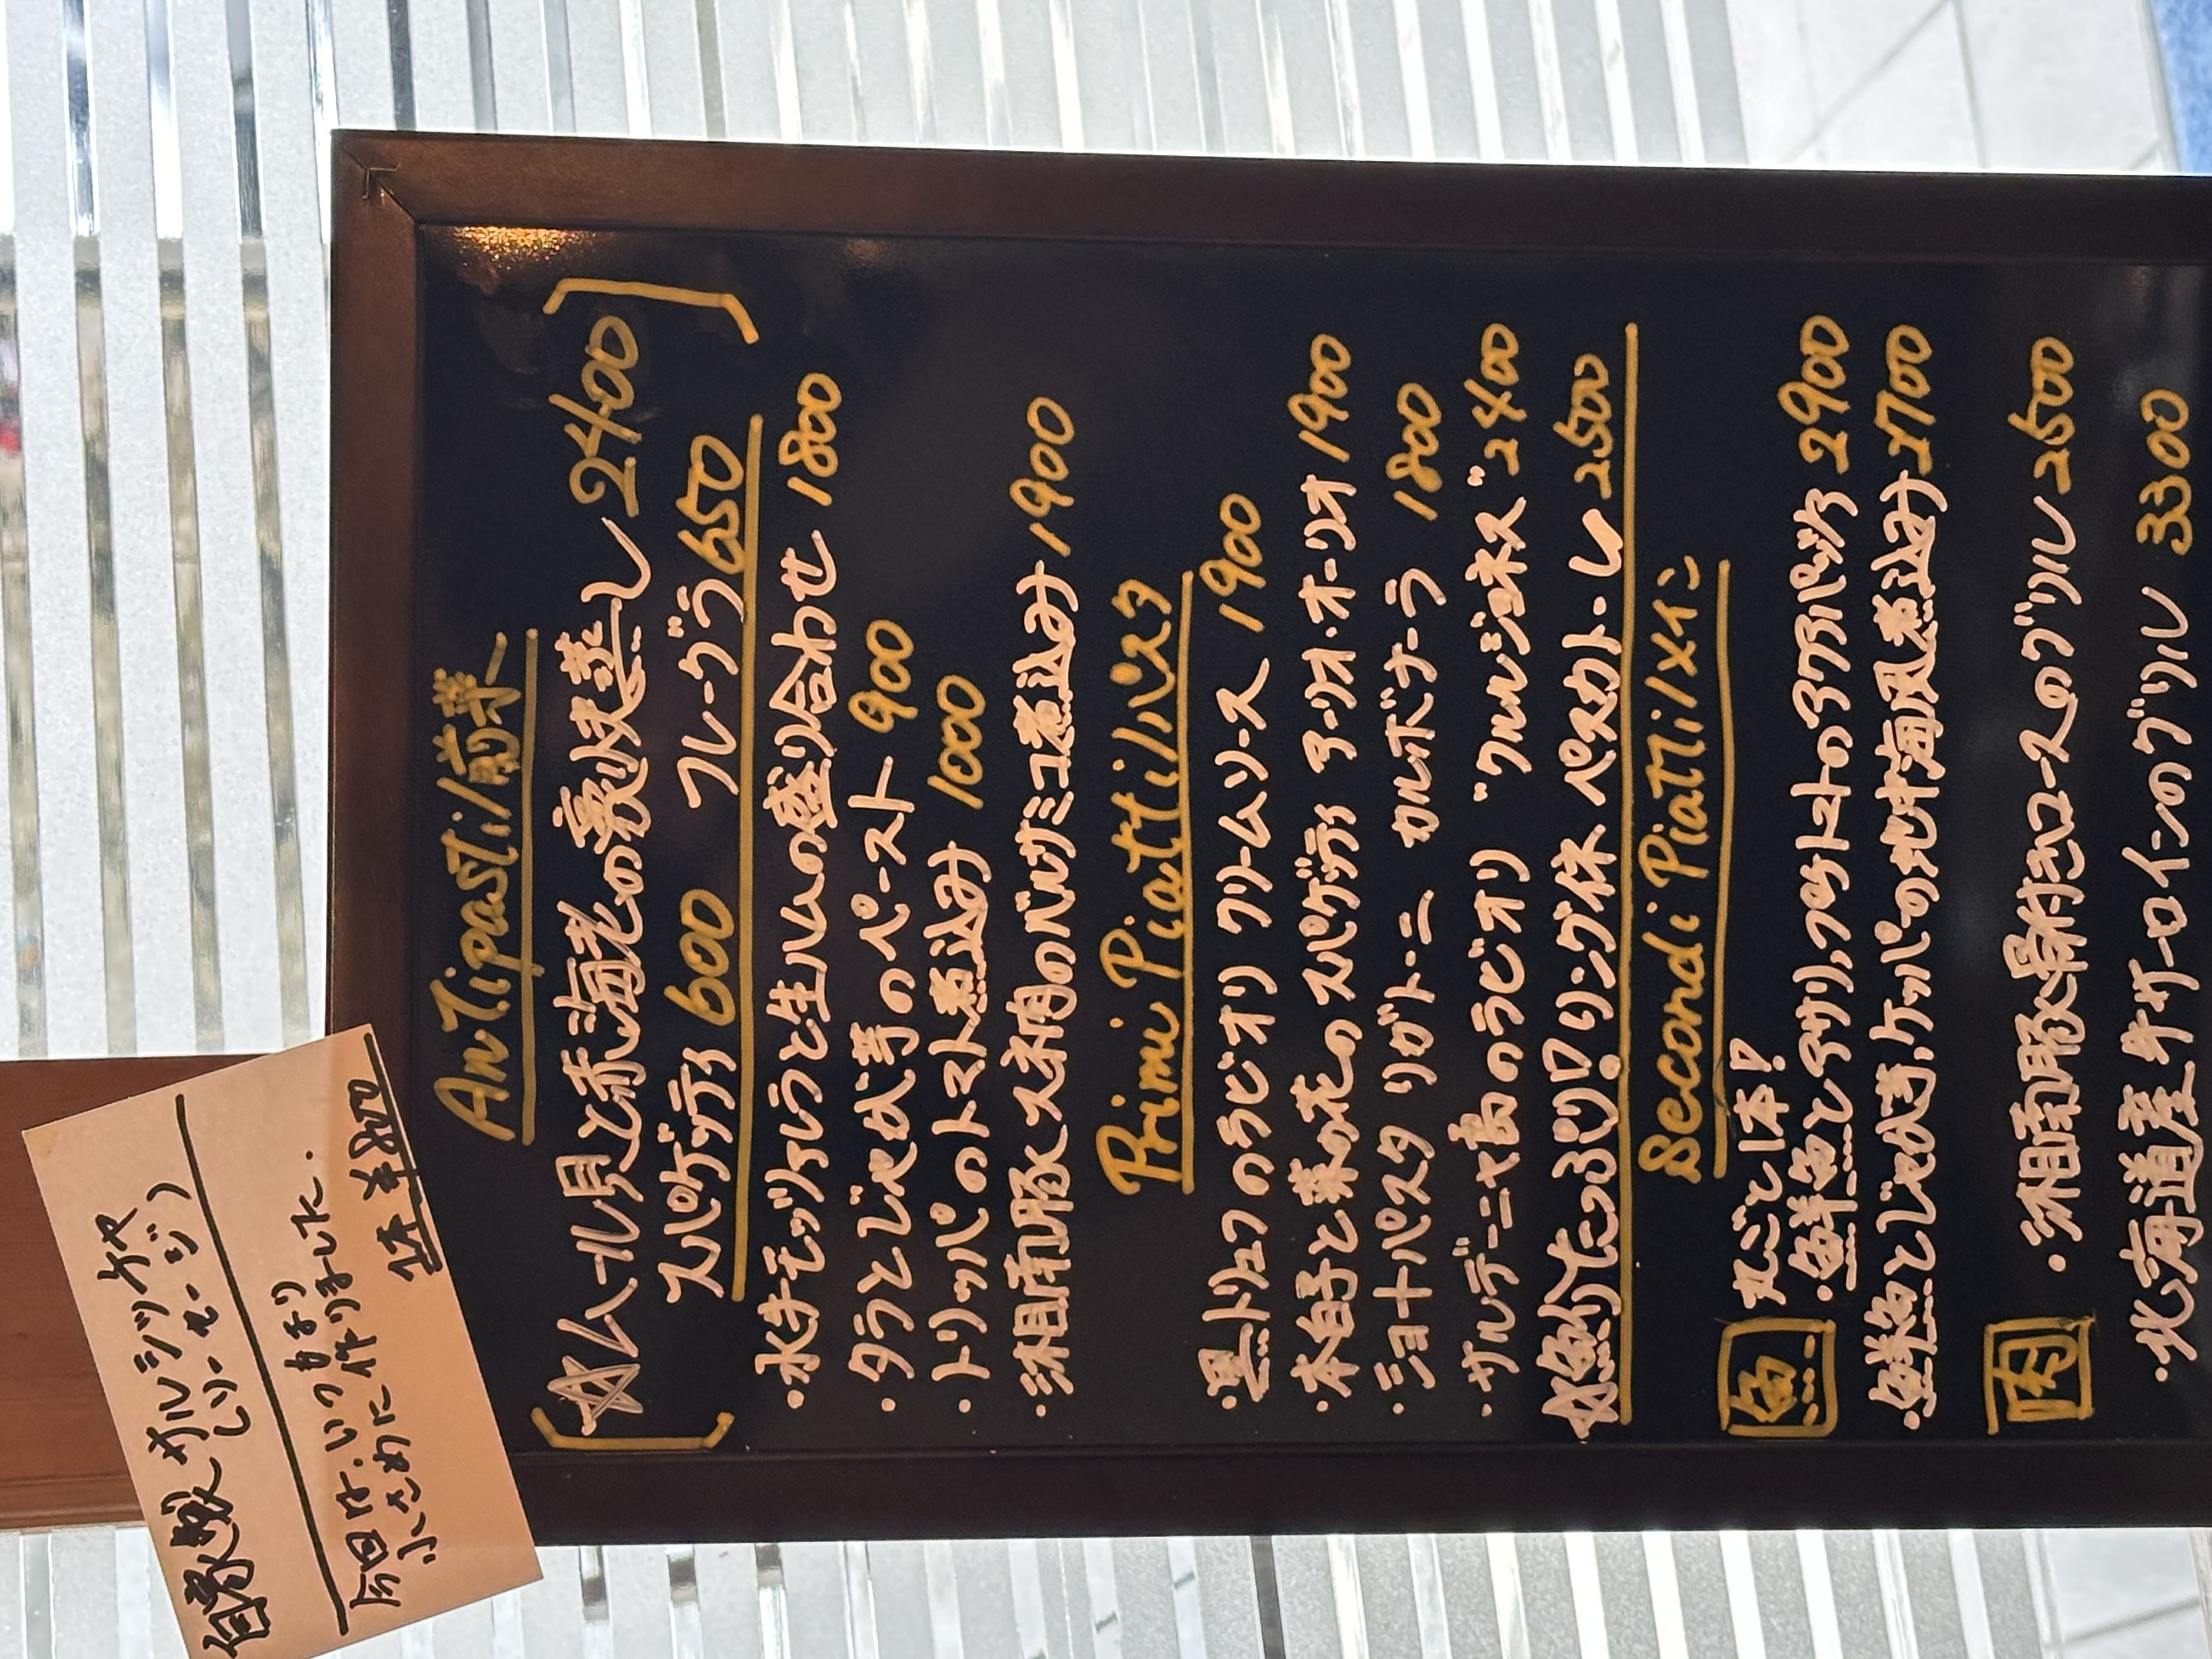 自家製サルシッチャ
(ソーセージ)
今回は、いつもより
小さめに作りました.
1本 ¥800
Antipasti/前菜
☆ムール貝と赤海老の豪快蒸し 2400
スパゲッティ 600 フレーグラ 650
・水牛モッツァレラと生ハムの盛り合わせ 1800
・タラとじゃが芋のペースト 900
・トリッパのトマト煮込み 1000
・湘南豚スネ肉のバルサミコ煮込み 1900
Primi Piatti/パスタ
・黒トリュフのラビオリ クリームソース 1900
・本白子と菜の花のスパゲッティ アーリオ・オーリオ 1900
・ショートパスタ リガトーニ カルボナーラ 1800
・サルデーニャ島のラビオリ "クルルジョネス" 2400
☆魚介たっぷり!リング体 ペスカトーレ 2500
Secondi Piatti/メイン
魚 丸ごと1本!
・鮮魚とアサリ、プチトマトのアクアパッツァ 2900
・鮮魚とじゃが芋、ケッパーの地中海風煮込み 2700
肉
・湘南豚骨付きロースのグリル 2500
・北海道産牛サーロインのグリル 3300